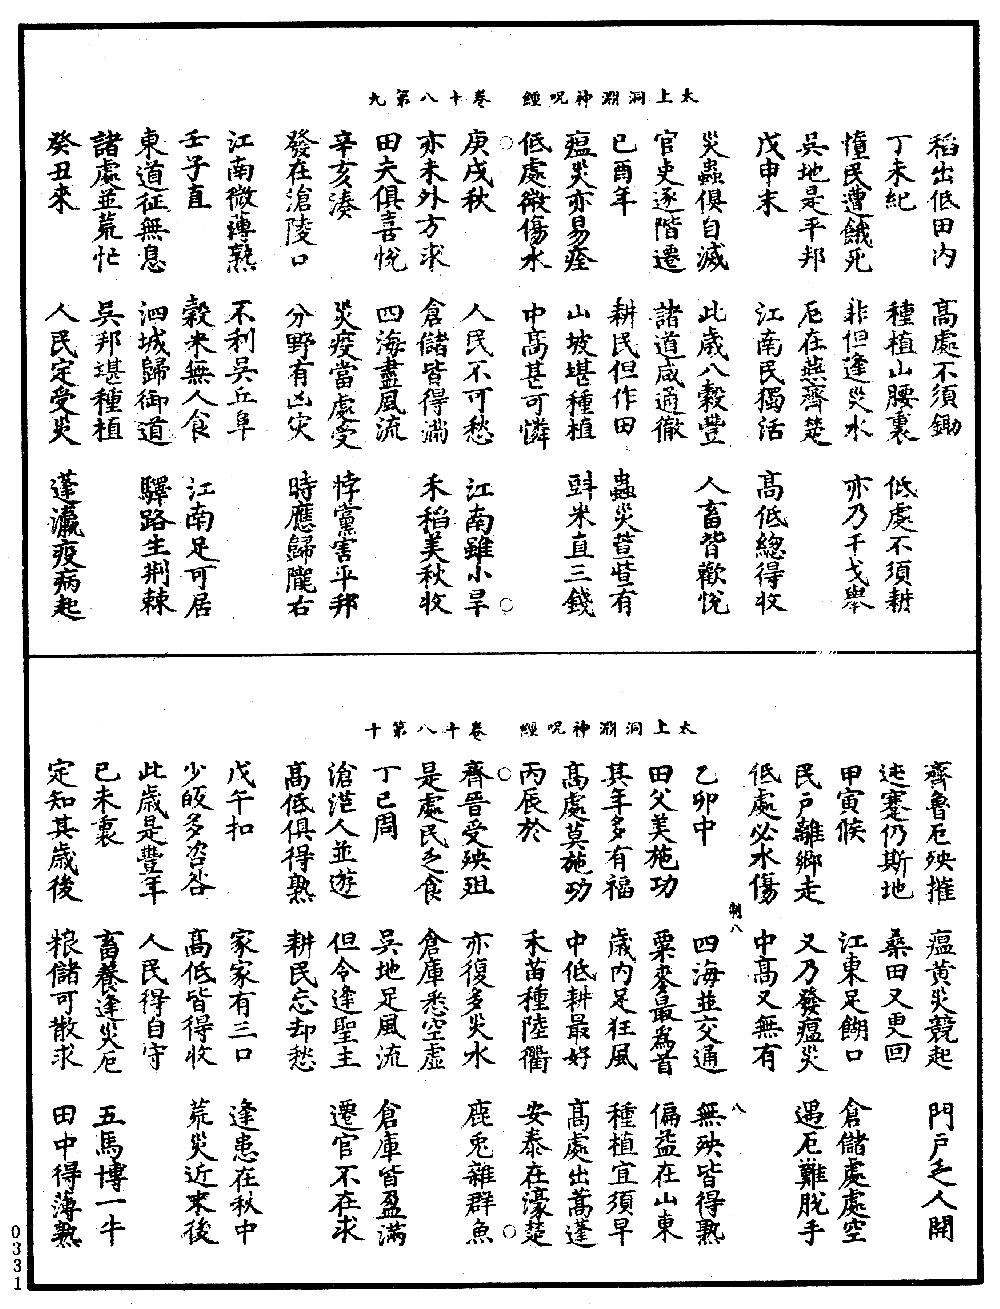 太上洞淵神呪經　卷十八第九
稻出低田内　高處不須鋤
丁未紀　種植山腰裏　低處不須耕
憧民遭餓死　非但逢災水　亦乃干戈舉
吳地是平邦　厄在燕齊楚
戊申末　江南民獨活　高低總得收
災蟲俱自滅　此歲八穀豐　人畜皆歡悅
官吏逐階遷　諸道咸通徹
己酉年　耕民但作田　蟲災萓萓有
瘟災亦易痊　山坡堪種植　㪷米直三錢
低處微傷水　中高甚可憐
庚戌秋　人民不可愁　江南雖小旱
亦未外方求　倉儲皆得滿　禾稻美秋收
田夫俱喜悅　四海盡風流
辛亥湊　災疫當處受　悖黨害平邦
發在滄陵口　分野有凶灾　時應歸隴右
江南微薄熟　不利吳丘阜
壬子直　穀米無人食　江南足可居
東道征無息　泗城歸御道　驛路生荆棘
諸處並荒忙　吳邦堪種植
癸丑來　人民定受災　蓬瀛疫病起
太上洞淵神呪經　卷十八第十
齊魯厄殃摧　瘟黄災競起　門戶乏人開
迍蹇仍斯地　桑田又更回
甲寅候　江東足餬口　倉儲處處空
民戶離鄉走　又乃發瘟災　遇厄難脫手
低處必水傷　中高又無有
制八　八
乙卯中　四海並交通　無殃皆得熟
田父美施功　粟麥最爲首　偏益在山東
其年多有福　歲内足狂風　種植宜須早
高處莫施功　中低耕最好　高處出蒿蓬
丙辰於　禾苗種陸衢　安泰在濠楚
齊晉受殃殂　亦復多災水　鹿兎雜群魚
是處民乏食　倉庫悉空虛
丁巳周　吳地足風流　倉庫皆盈滿
滄溰人並遊　但令逢聖主　遷官不在求
高低俱得熟　耕民忘却愁
戊午扣　家家有三口　逢患在秋中
少皈多咨谷　高低皆得收　荒災近來後
此歲是豐年　人民得自守
己未裏　畜養逢災厄　五馬博一牛
定知其歲後　粮儲可散求　田中得薄熟
0331